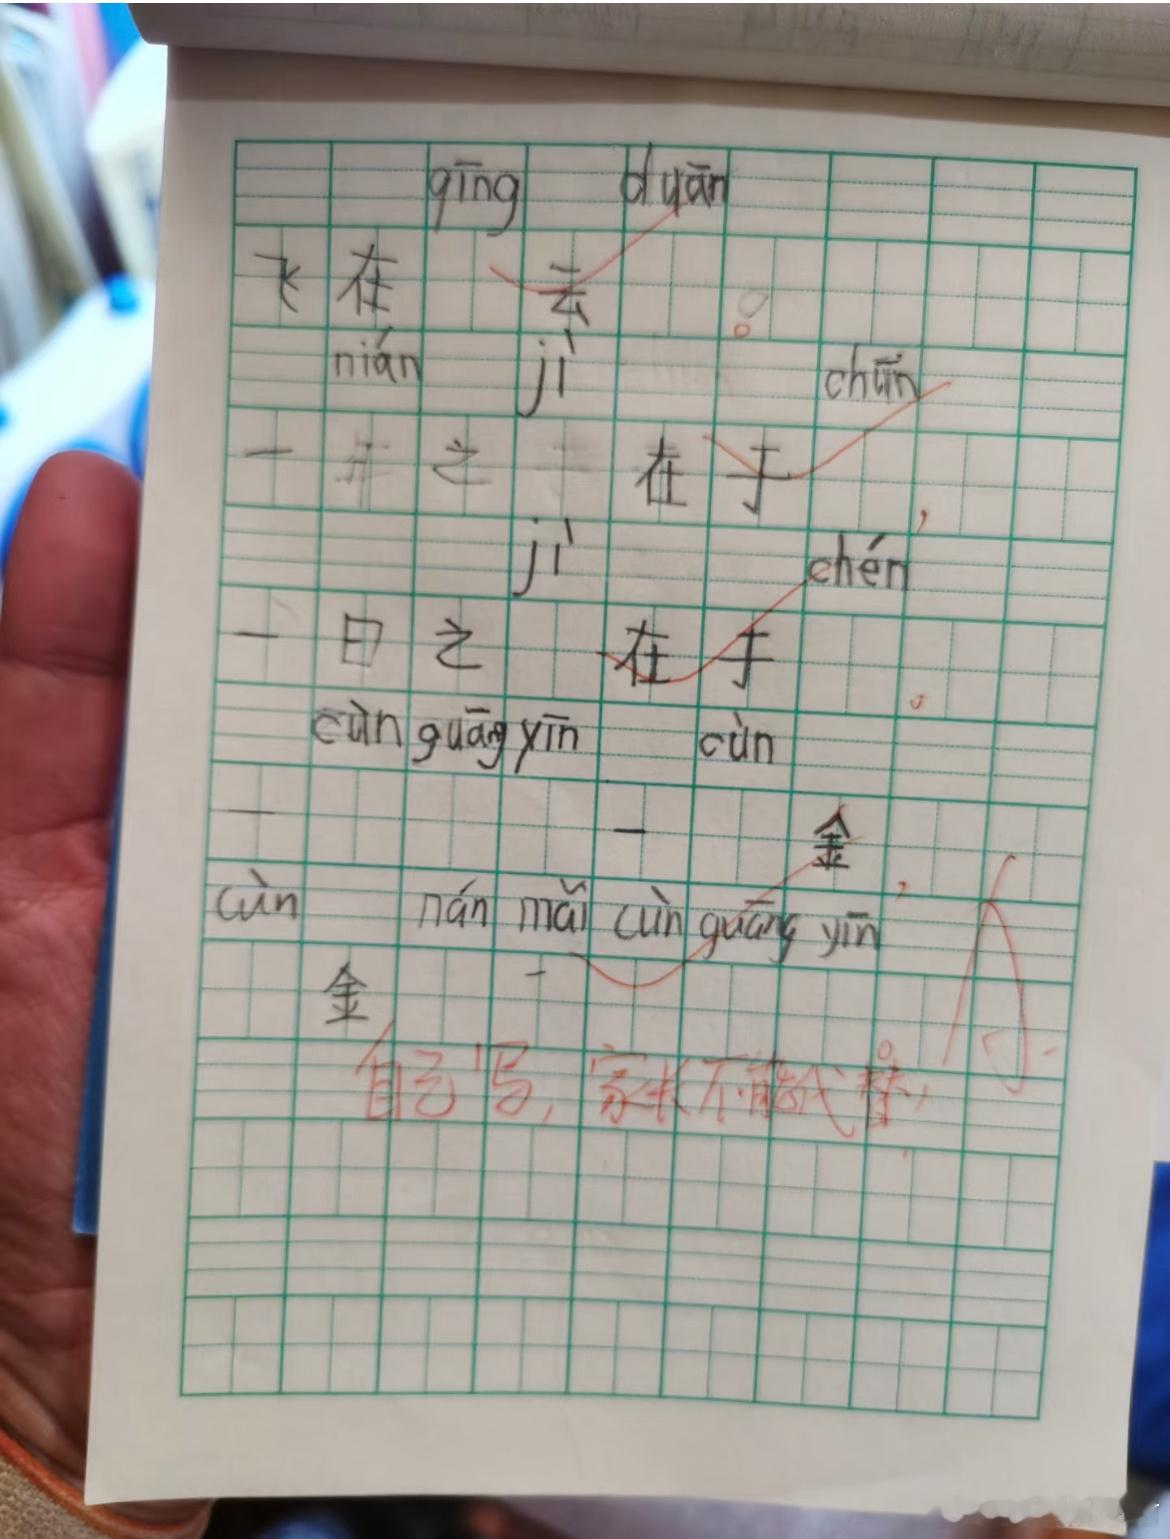 qīng duān
飞在 云 。
nián jì chūn
一年之 在于 ，
jì chén
一日之 在于 。
cùn guāng yīn cùn
一 一 金 ，
cùn nán mǎi cùn guāng yīn
金 一 。
自己写，家长不能代替，